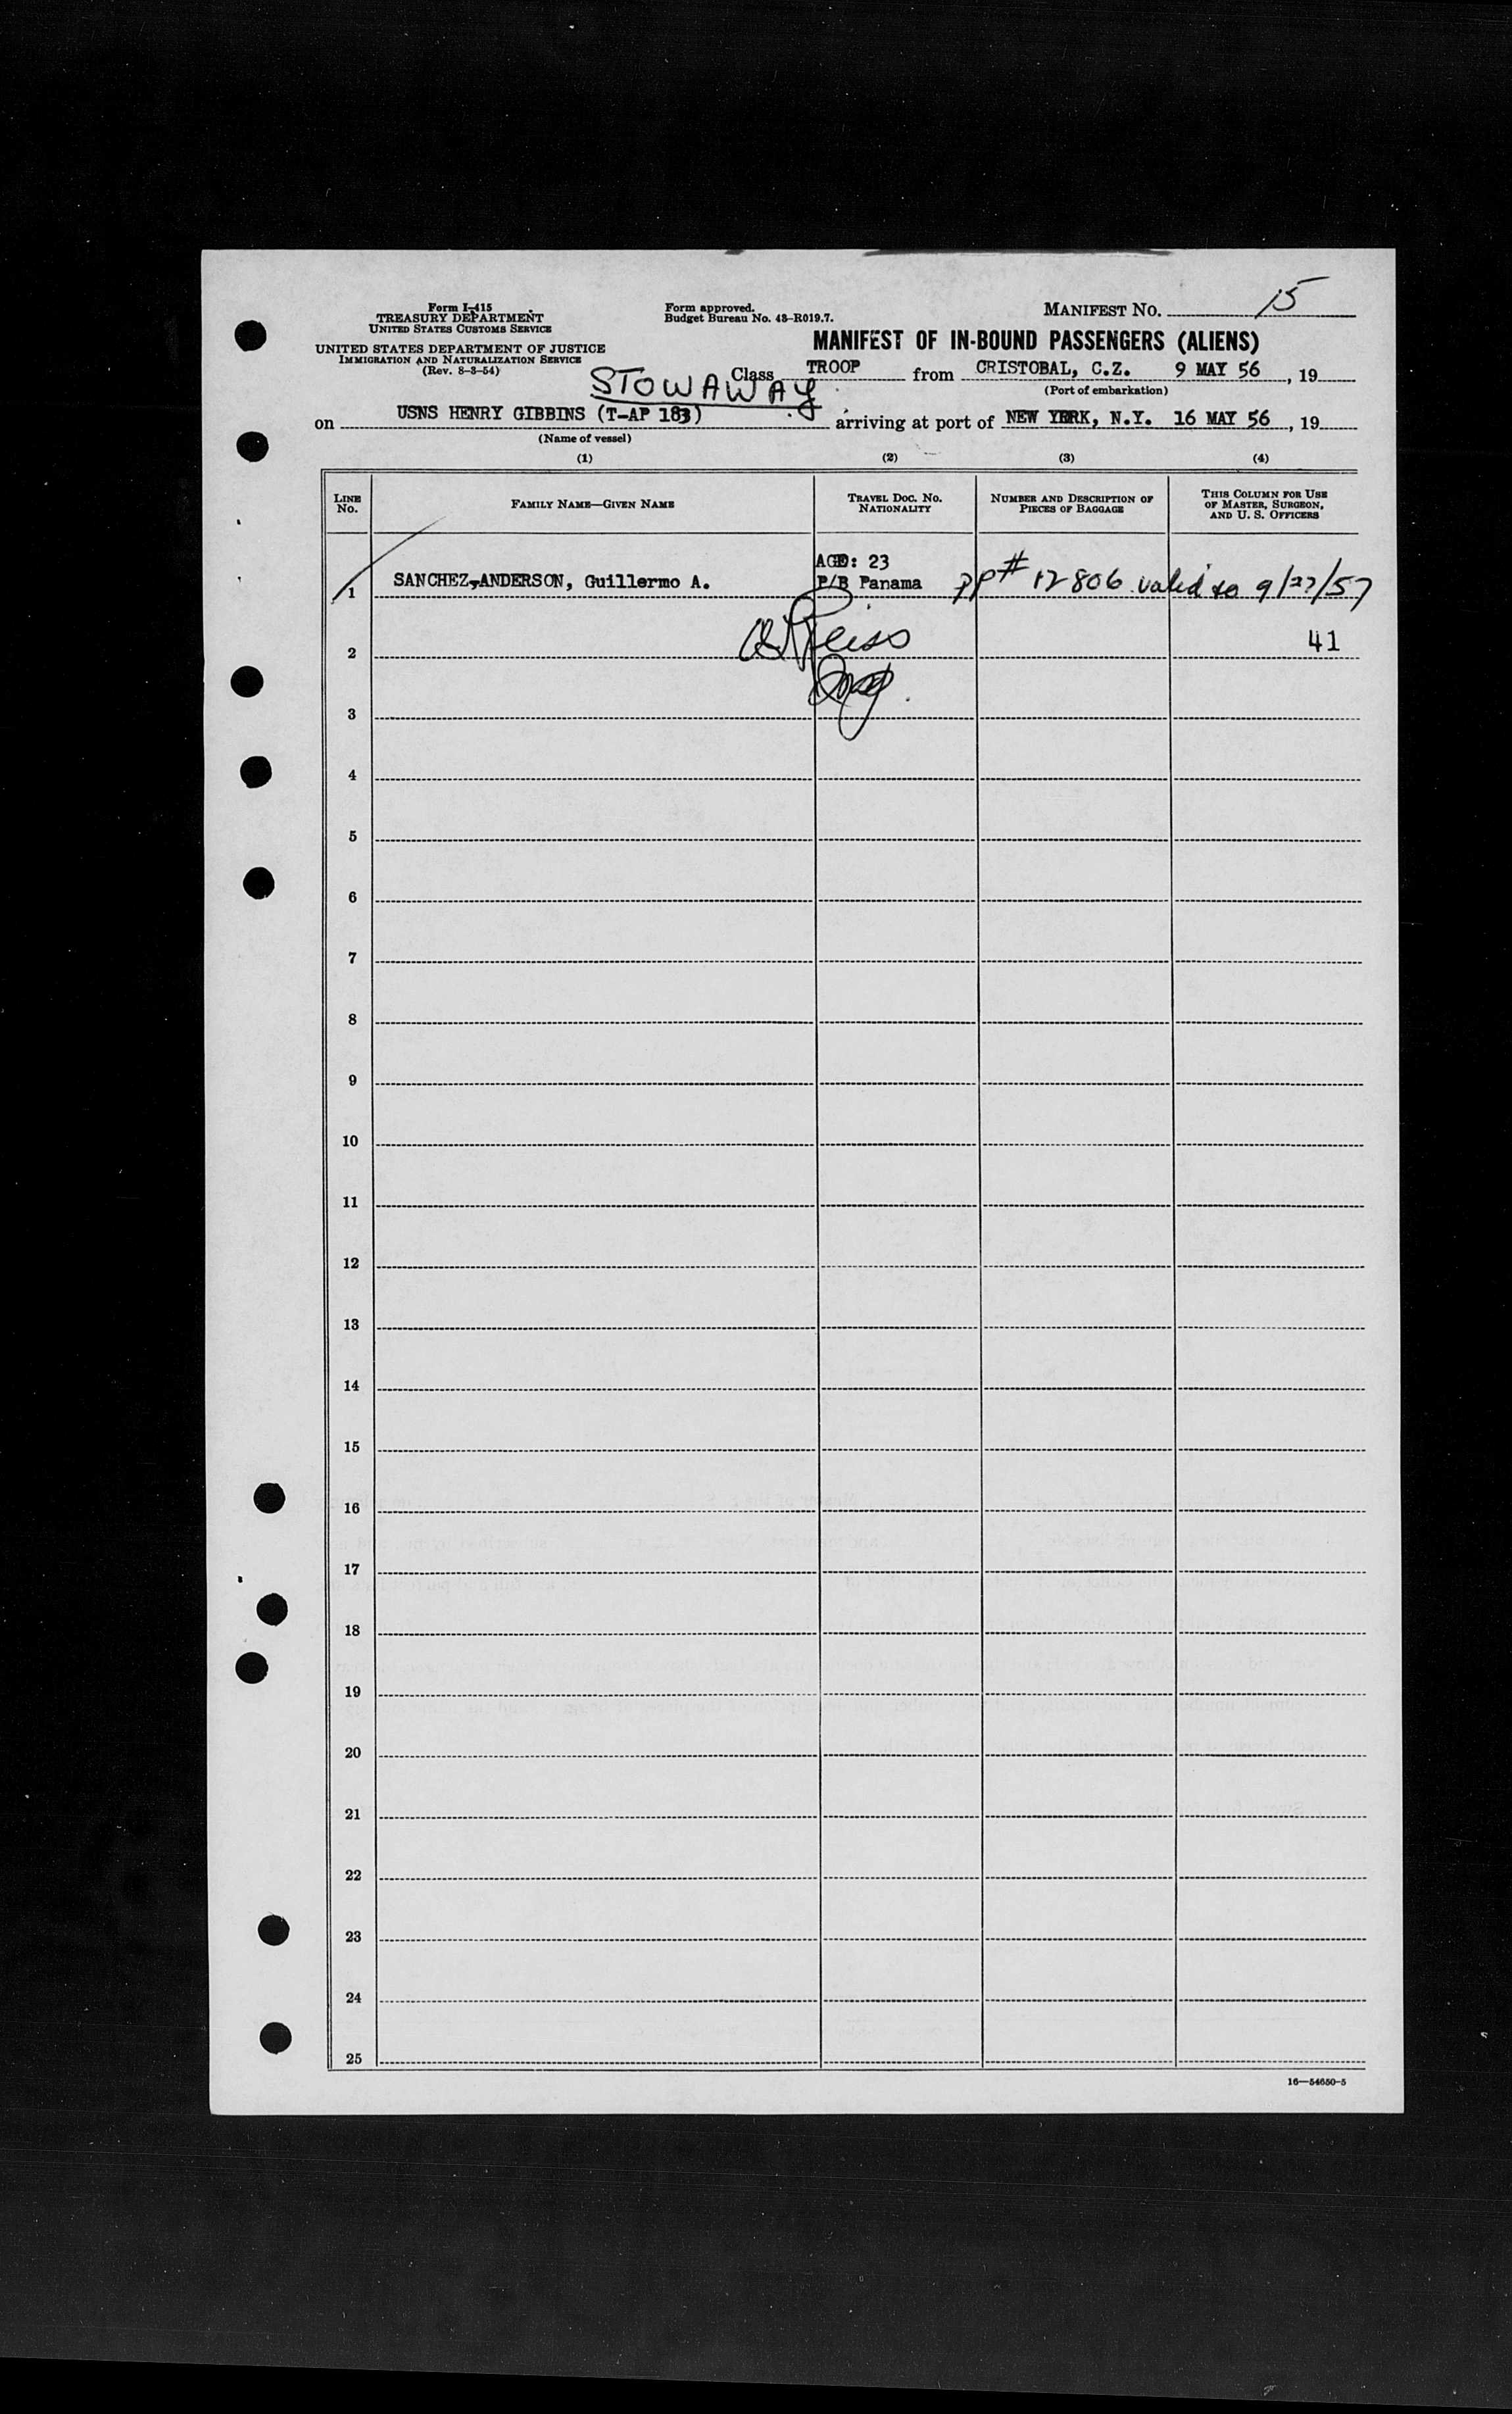 Form I-415
TREASURY DEPARTMENT
UNITED STATES CUSTOMS SERVICE
UNITED STATES DEPARTMENT OF JUSTICE
IMMIGRATION AND NATURALIZATION SERVICE
(Rev. 8-3-54)
Form approved.
Budget Bureau No. 43-R019.7.
MANIFEST No. 15
MANIFEST OF IN-BOUND PASSENGERS (ALIENS)
STOWAWAY
Class TROOP from CRISTOBAL, C.Z. 9 MAY 56, 19
(Port of embarkation)
on USNS HENRY GIBBINS (T-AP 183) arriving at port of NEW YORK, N.Y. 16 MAY 56, 19
(Name of vessel)
(1) (2) (3) (4)
LINE No. FAMILY NAME—GIVEN NAME TRAVEL DOC. NO. NATIONALITY NUMBER AND DESCRIPTION OF PIECES OF BAGGAGE THIS COLUMN FOR USE OF MASTER, SURGEON, AND U. S. OFFICERS
AGE: 23
1 SANCHEZ-ANDERSON, Guillermo A. P/B Panama PP# 12806 valid to 9/27/57
2 41
3
4
5
6
7
8
9
10
11
12
13
14
15
16
17
18
19
20
21
22
23
24
25
16—54650-5